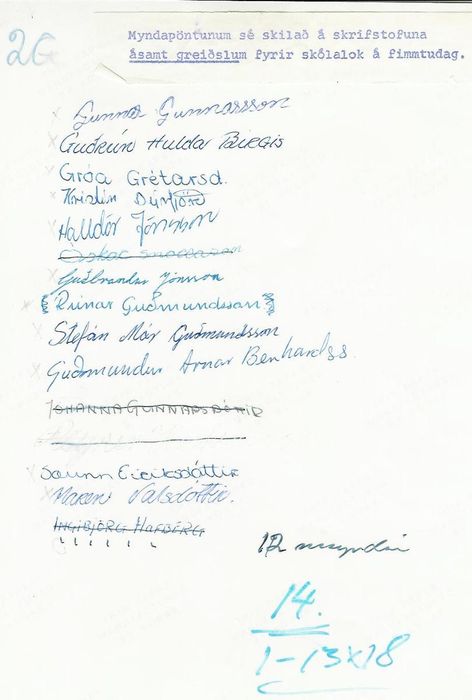 2G
Myndapöntunum sé skilað á skrifstofuna
ásamt greiðslum fyrir skólalok á fimmtudag.
Gunnar Gunnarsson
Guðrún Hulda Birgis
Gróa Grétarsd.
Kristín Dýrfjörð
Halldór Jónsson
Óskar Snorrason
Guðbrandur Jónsson
Rúnar Guðmundsson
Stefán Már Guðmundsson
Guðmundur Arnar Bernhardss.
JÓHANNA GUNNARSDÓTTIR
Saunn Eiríksdóttir
Maren Valsdóttir.
INGIBJÖRG HAFBERG
12 myndir
14.
1-13x18